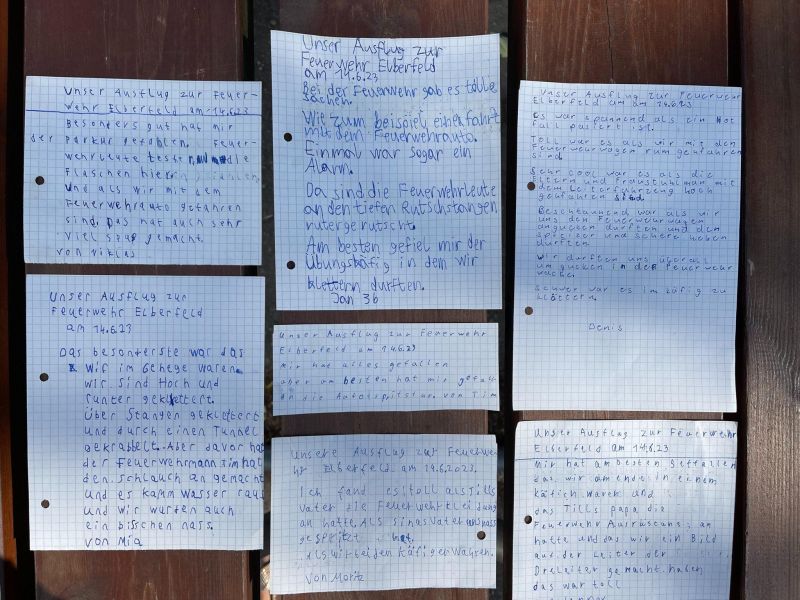 Unser Ausflug zur Feuer-
wehr Elberfeld am 14.6.23
Besonders gut hat mir
der Parkur gefahlen. Feuer-
wehrleute testen die
Flaschen hierrin
Und als wir mit dem
Feuerwehrauto gefahren
sind, Das hat auch sehr
viel spas gemacht.
von Niklas
Unser Ausflug zur
Feuerwehr Elberfeld
am 14.6.23
Das besonterste war das
wir im Gehege waren.
wir sind Hoch und
runter geklettert.
Über Stangen geklettert
und durch einen Tunnel
gekrabbelt. Aber davor hat
der Feuerwehrmann Tim hat
den schlauch an gemacht
und es kamm wasser raus
und wir wurden auch
ein bisschen nass.
von Mia
Unser Ausflug zur
Feuerwehr Elberfeld
am 14.6.23
Bei der Feuerwehr gab es tolle
sachen.
Wie zum beispiel eine fahrt
mit dem Feuerwehrauto.
Einmal war sogar ein
Alarm.
Da sind die Feuerwehrleute
an den tiefen Rutschstangen
runtergerutscht.
Am besten gefiel mir der
Übungskäfig in dem wir
klettern durften.
Jan 3b
Unser Ausflug zur Feuerwehr
Elberfeld am 14.6.23
Mir hat alles gefallen
aber am besten hat mir gefall-
en die von Tim
Unsere Ausflug zur Feuerwe
hr Elberfeld am 14.6.2023.
Ich fand es toll als Tills
Vater die Feuerwehrkleidung
an hatte. Als Vater uns nass
gespritzt hat.
Als wir bei den Käfigen wahren.
Von Moritz
Unser Ausflug zur Feuerwehr
Elberfeld am am 14.6.23
Es war spannend als ein Not
fall pasiert ist.
Toll war es als wir mit den
Feuerwehrwagen rum gefahren
sind.
Sehr cool war es als die
Eltern und Fraustuhlman mit
dem Leiterfahrzeug hoch
gefahren sind.
war als wir
uns den Feuerwehrwagen
angucken durften und den
Spreizer und schere heben
durften.
Wir durften uns überall
um gucken in der Feuerwehr
wache.
Schwer war es im Käfig zu
klettern.
Denis
Unser Ausflug zur Feuerwehr
Elberfeld am 14.6.23
Mir hat am besten gefallen
das wir am ende in einem
käfich waren und
das Tills papa die
Feuerwehr Ausrüstung an
hatte und das wir ein Bild
auf der Leiter der
Dreleiter gemacht haben
das war toll